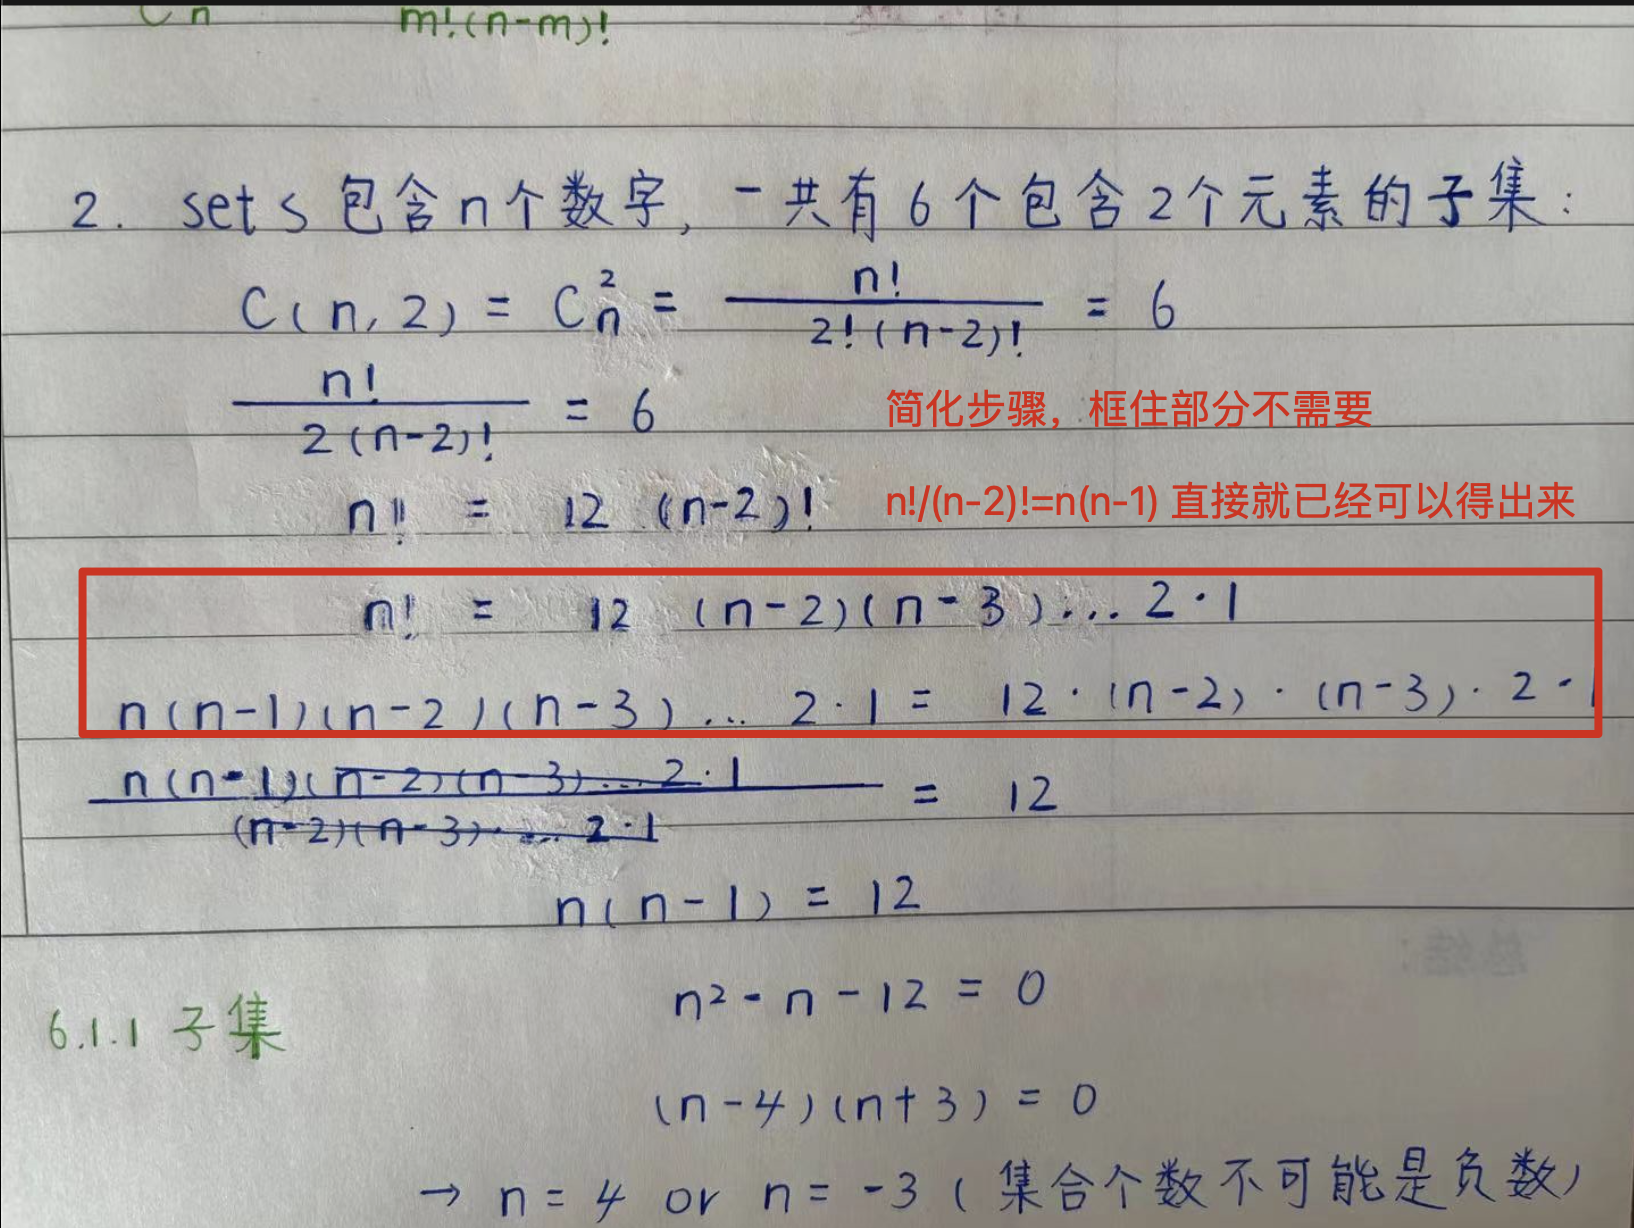 Cn m!(n-m)!
2. set s 包含n个数字, 一共有6个包含2个元素的子集:
C(n,2) = C²n = n! / 2!(n-2)! = 6
n! / 2(n-2)! = 6
简化步骤，框住部分不需要
n! = 12 (n-2)!
n!/(n-2)!=n(n-1) 直接就已经可以得出来
n! = 12 (n-2)(n-3)... 2·1
n(n-1)(n-2)(n-3)... 2·1 = 12·(n-2)·(n-3)·2·1
n(n-1)(n-2)(n-3)...2·1 / (n-2)(n-3)·...2·1 = 12
n(n-1) = 12
总结:
n²-n-12 = 0
6.1.1 子集
(n-4)(n+3) = 0
→ n=4 or n=-3 (集合个数不可能是负数)